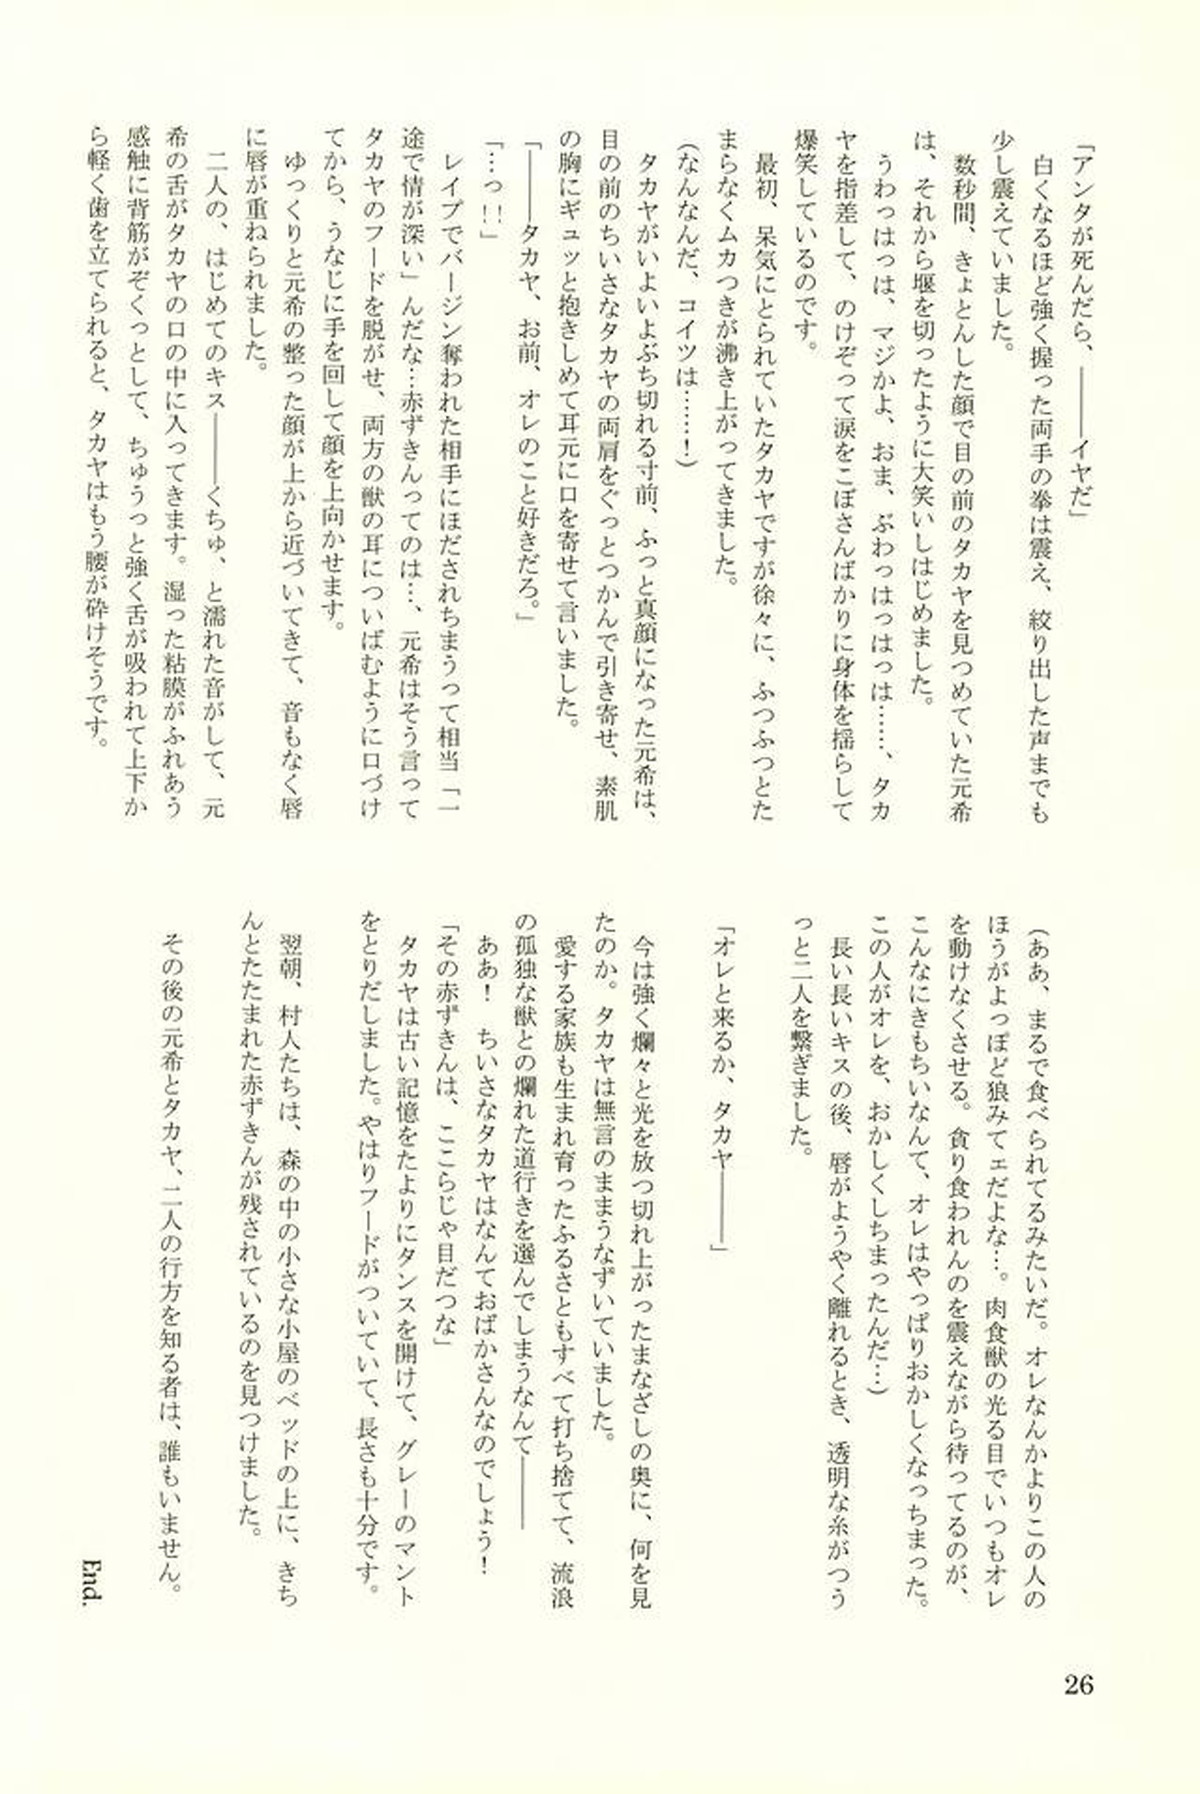 「アンタが死んだら、――――イヤだ」
　白くなるほど強く握った両手の拳は震え、絞り出した声までも
少し震えていました。
　数秒間、きょとんした顔で目の前のタカヤを見つめていた元希
は、それから堰を切ったように大笑いしはじめました。
　うわっはっは、マジかよ、おま、ぶわっはっはっは……、タカ
ヤを指差して、のけぞって涙をこぼさんばかりに身体を揺らして
爆笑しているのです。
　最初、呆気にとられていたタカヤですが徐々に、ふつふつとた
まらなくムカつきが沸き上がってきました。
（なんなんだ、コイツは……！）
　タカヤがいよいよぶち切れる寸前、ふっと真顔になった元希は、
目の前のちいさなタカヤの両肩をぐっとつかんで引き寄せ、素肌
の胸にギュッと抱きしめて耳元に口を寄せて言いました。
「――――タカヤ、お前、オレのこと好きだろ。」
「…っ!!」
　レイプでバージン奪われた相手にほだされちまうって相当「一
途で情が深い」んだな…赤ずきんってのは…、元希はそう言って
タカヤのフードを脱がせ、両方の獣の耳についばむように口づけ
てから、うなじに手を回して顔を上向かせます。
　ゆっくりと元希の整った顔が上から近づいてきて、音もなく唇
に唇が重ねられました。
　二人の、はじめてのキス――――くちゅ、と濡れた音がして、元
希の舌がタカヤの口の中に入ってきます。湿った粘膜がふれあう
感触に背筋がぞくっとして、ちゅうっと強く舌が吸われて上下か
ら軽く歯を立てられると、タカヤはもう腰が砕けそうです。
（ああ、まるで食べられてるみたいだ。オレなんかよりこの人の
ほうがよっぽど狼みてェだよな…。肉食獣の光る目でいつもオレ
を動けなくさせる。貪り食われんのを震えながら待ってるのが、
こんなにきもちいなんて、オレはやっぱりおかしくなっちまった。
この人がオレを、おかしくしちまったんだ…）
　長い長いキスの後、唇がようやく離れるとき、透明な糸がつう
っと二人を繋ぎました。
「オレと来るか、タカヤ――――」
　今は強く爛々と光を放つ切れ上がったまなざしの奥に、何を見
たのか。タカヤは無言のままうなずいていました。
　愛する家族も生まれ育ったふるさともすべて打ち捨てて、流浪
の孤独な獣との爛れた道行きを選んでしまうなんて――――
　ああ！　ちいさなタカヤはなんておばかさんなのでしょう！
「その赤ずきんは、ここらじゃ目だつな」
　タカヤは古い記憶をたよりにタンスを開けて、グレーのマント
をとりだしました。やはりフードがついていて、長さも十分です。
　翌朝、村人たちは、森の中の小さな小屋のベッドの上に、きち
んとたたまれた赤ずきんが残されているのを見つけました。
　その後の元希とタカヤ、二人の行方を知る者は、誰もいません。
End.
26